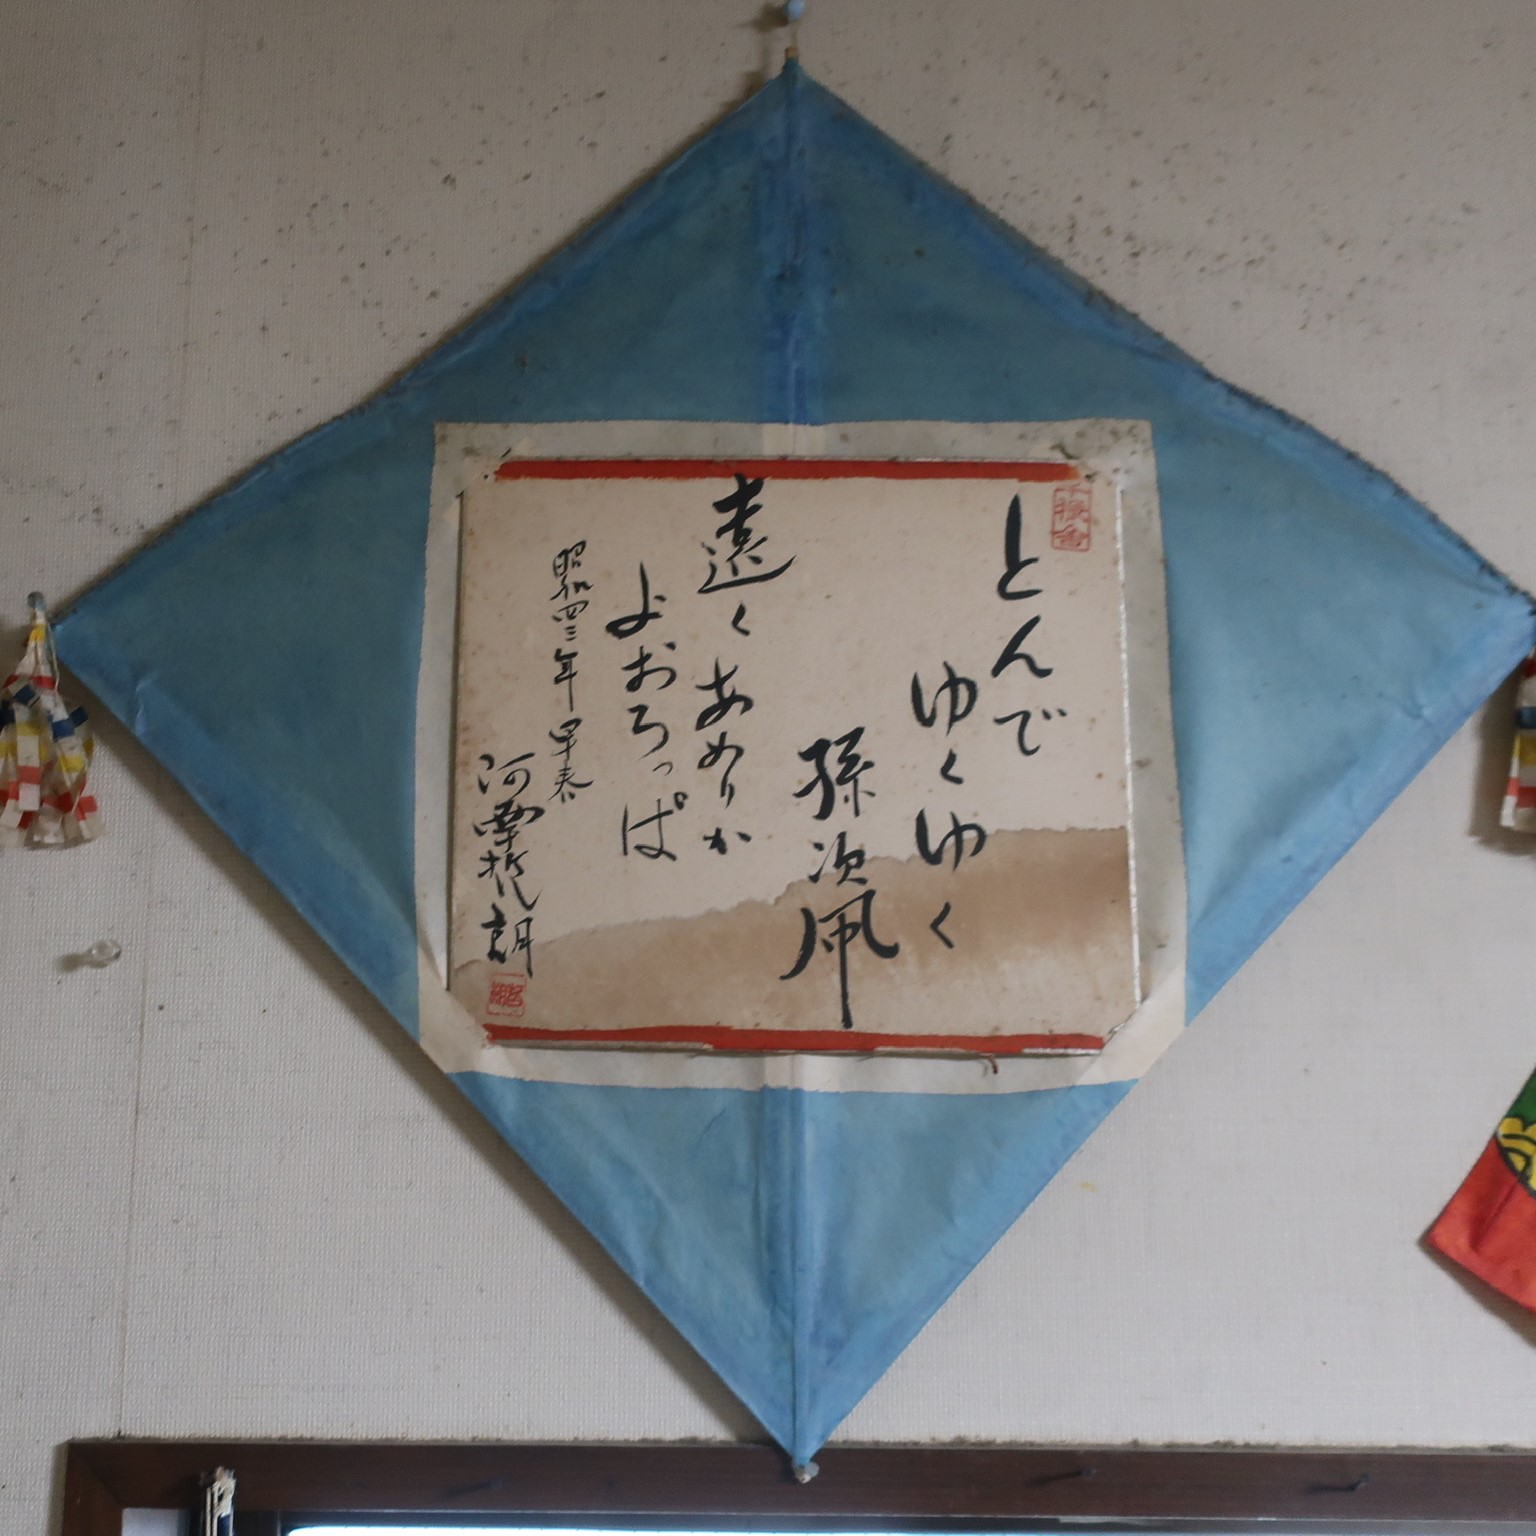 とんで
ゆくゆく
孫次凧
遠くあめりか
よおろっぱ
昭和四二年早春
河野
朗